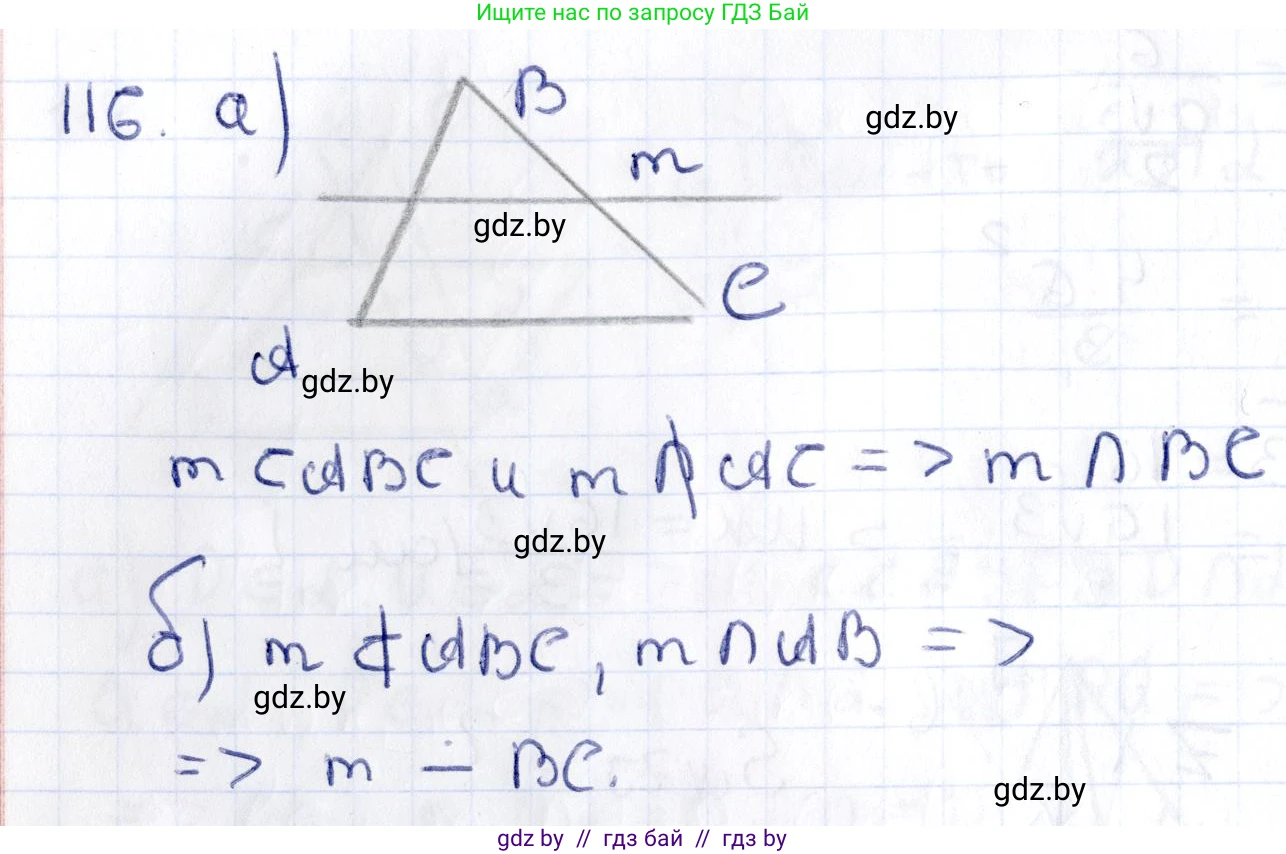 Ищите нас по запросу ГДЗ Бай
116. а)
B
gdz.by
m
gdz.by
C
A
gdz.by
m ⊂ ABC и m ∩̸ AC => m ∩ BC
gdz.by
б) m ⊄ ABC, m ∩ AB =>
gdz.by
=> m ∸ BC.
gdz.by
gdz.by // гдз бай // гдз by